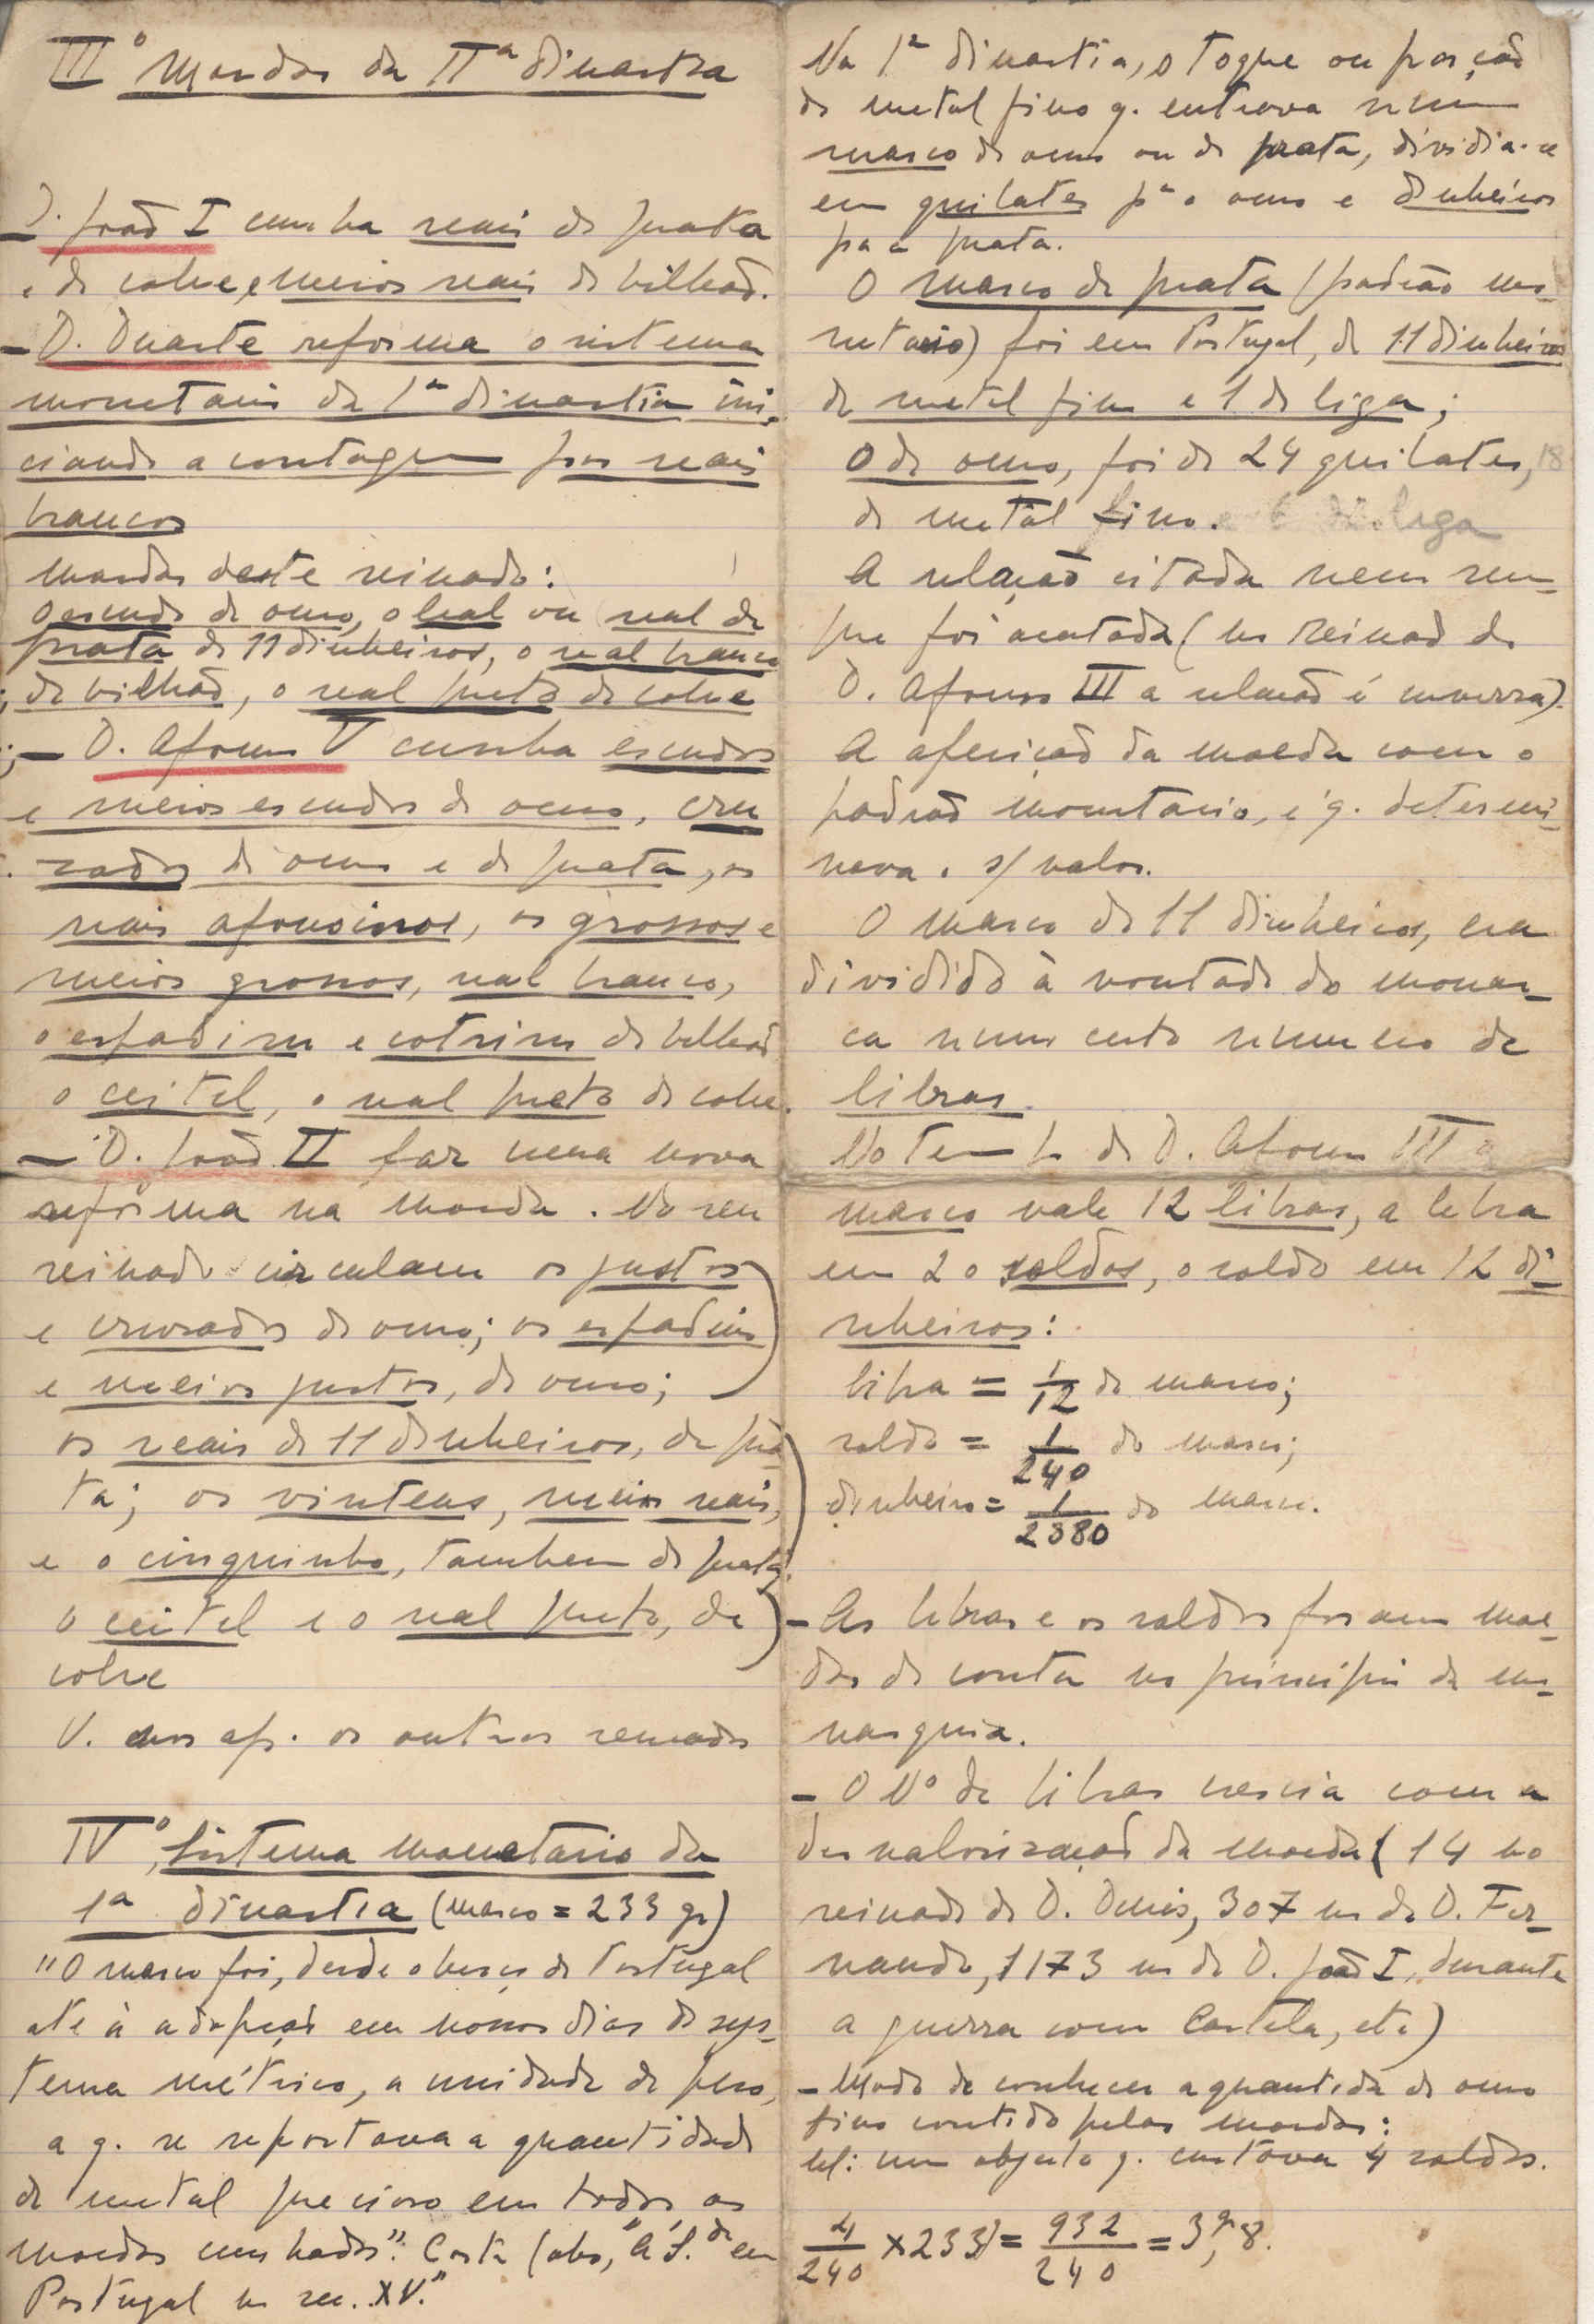 IIIº Moedas da IIª dinastia
D. João I cunha reais de prata
e de cobre, e meios reais de bilhão.
– D. Duarte reforma o sistema
monetário da 1ª dinastia ini-
ciando a contagem por reais
brancos
Moedas deste reinado:
o escudo de ouro, o leal ou real de
prata de 11 dinheiros, o real branco
de bilhão, o real preto de cobre
; – D. Afonso V cunha escudos
e meios escudos de ouro, cru
zados de ouro e de prata, os
reais afonsinos, os grossos e
meios grossos, real branco,
o espadim e cotrim de bilhão
o ceitil, o real preto de cobre.
– D. João II faz uma nova
reforma na moeda. No seu
reinado circulam os justos
e cruzados de ouro; os espadins
e meios justos, de ouro;
os reais de 11 dinheiros, de pra
ta; os vintens, meios reais,
e o cinquinho, tambem de prata;
o ceitil e o real preto, de
cobre
V. nos ap. os outros reinados
IVº, Sistema monetário da
1ª dinastia (marco = 233 gr)
"O marco foi, desde o berço de Portugal
até à adopção em nossos dias do sys-
tema métrico, a unidade de peso,
a q. se reportava a quantidade
de metal precioso em todas as
moedas cunhadas". Costa (abo, "A S. de em
Portugal no sec. XV."
Na 1ª dinastia, o toque ou porção
de metal fino q. entrava num
marco de ouro ou de prata, dividia-se
em quilates pª o ouro e dinheiros
pa a prata.
O marco de prata (padrão mo-
netário) foi em Portugal, de 11 dinheiros
de metal fino e 1 de liga;
O de ouro, foi de 24 quilates, 18
de metal fino. e 6 de liga
A relação citada nem sem-
pre foi acatada (no reinado de
D. Afonso III a relação é inversa).
A aferição da moeda com o
padrão monetário, é q. determi-
nava o s/ valor.
O marco de 11 dinheiros, era
dividido à vontade do monar-
ca num certo numero de
libras.
No tempo de D. Afonso III o
marco vale 12 libras, a libra
em 20 soldos, o soldo em 12 di-
nheiros:
libra = 1/12 do marco;
soldo = 1/240 do marco;
dinheiro = 1/2880 do marco.
– As libras e os soldos foram moe-
das de conta no principio da mo-
narquia.
– O Nº de libras crescia com a
desvalorização da moeda (14 no
reinado de D. Denis, 307 no de D. Fer-
nando, 1173 no de D. João I, durante
a guerra com Castela, etc)
– Modo de conhecer a quantida de ouro
fino contido pelas moedas:
um objecto q. custava 4 soldos.
4/240 × 233 = 932/240 = 3g,8.